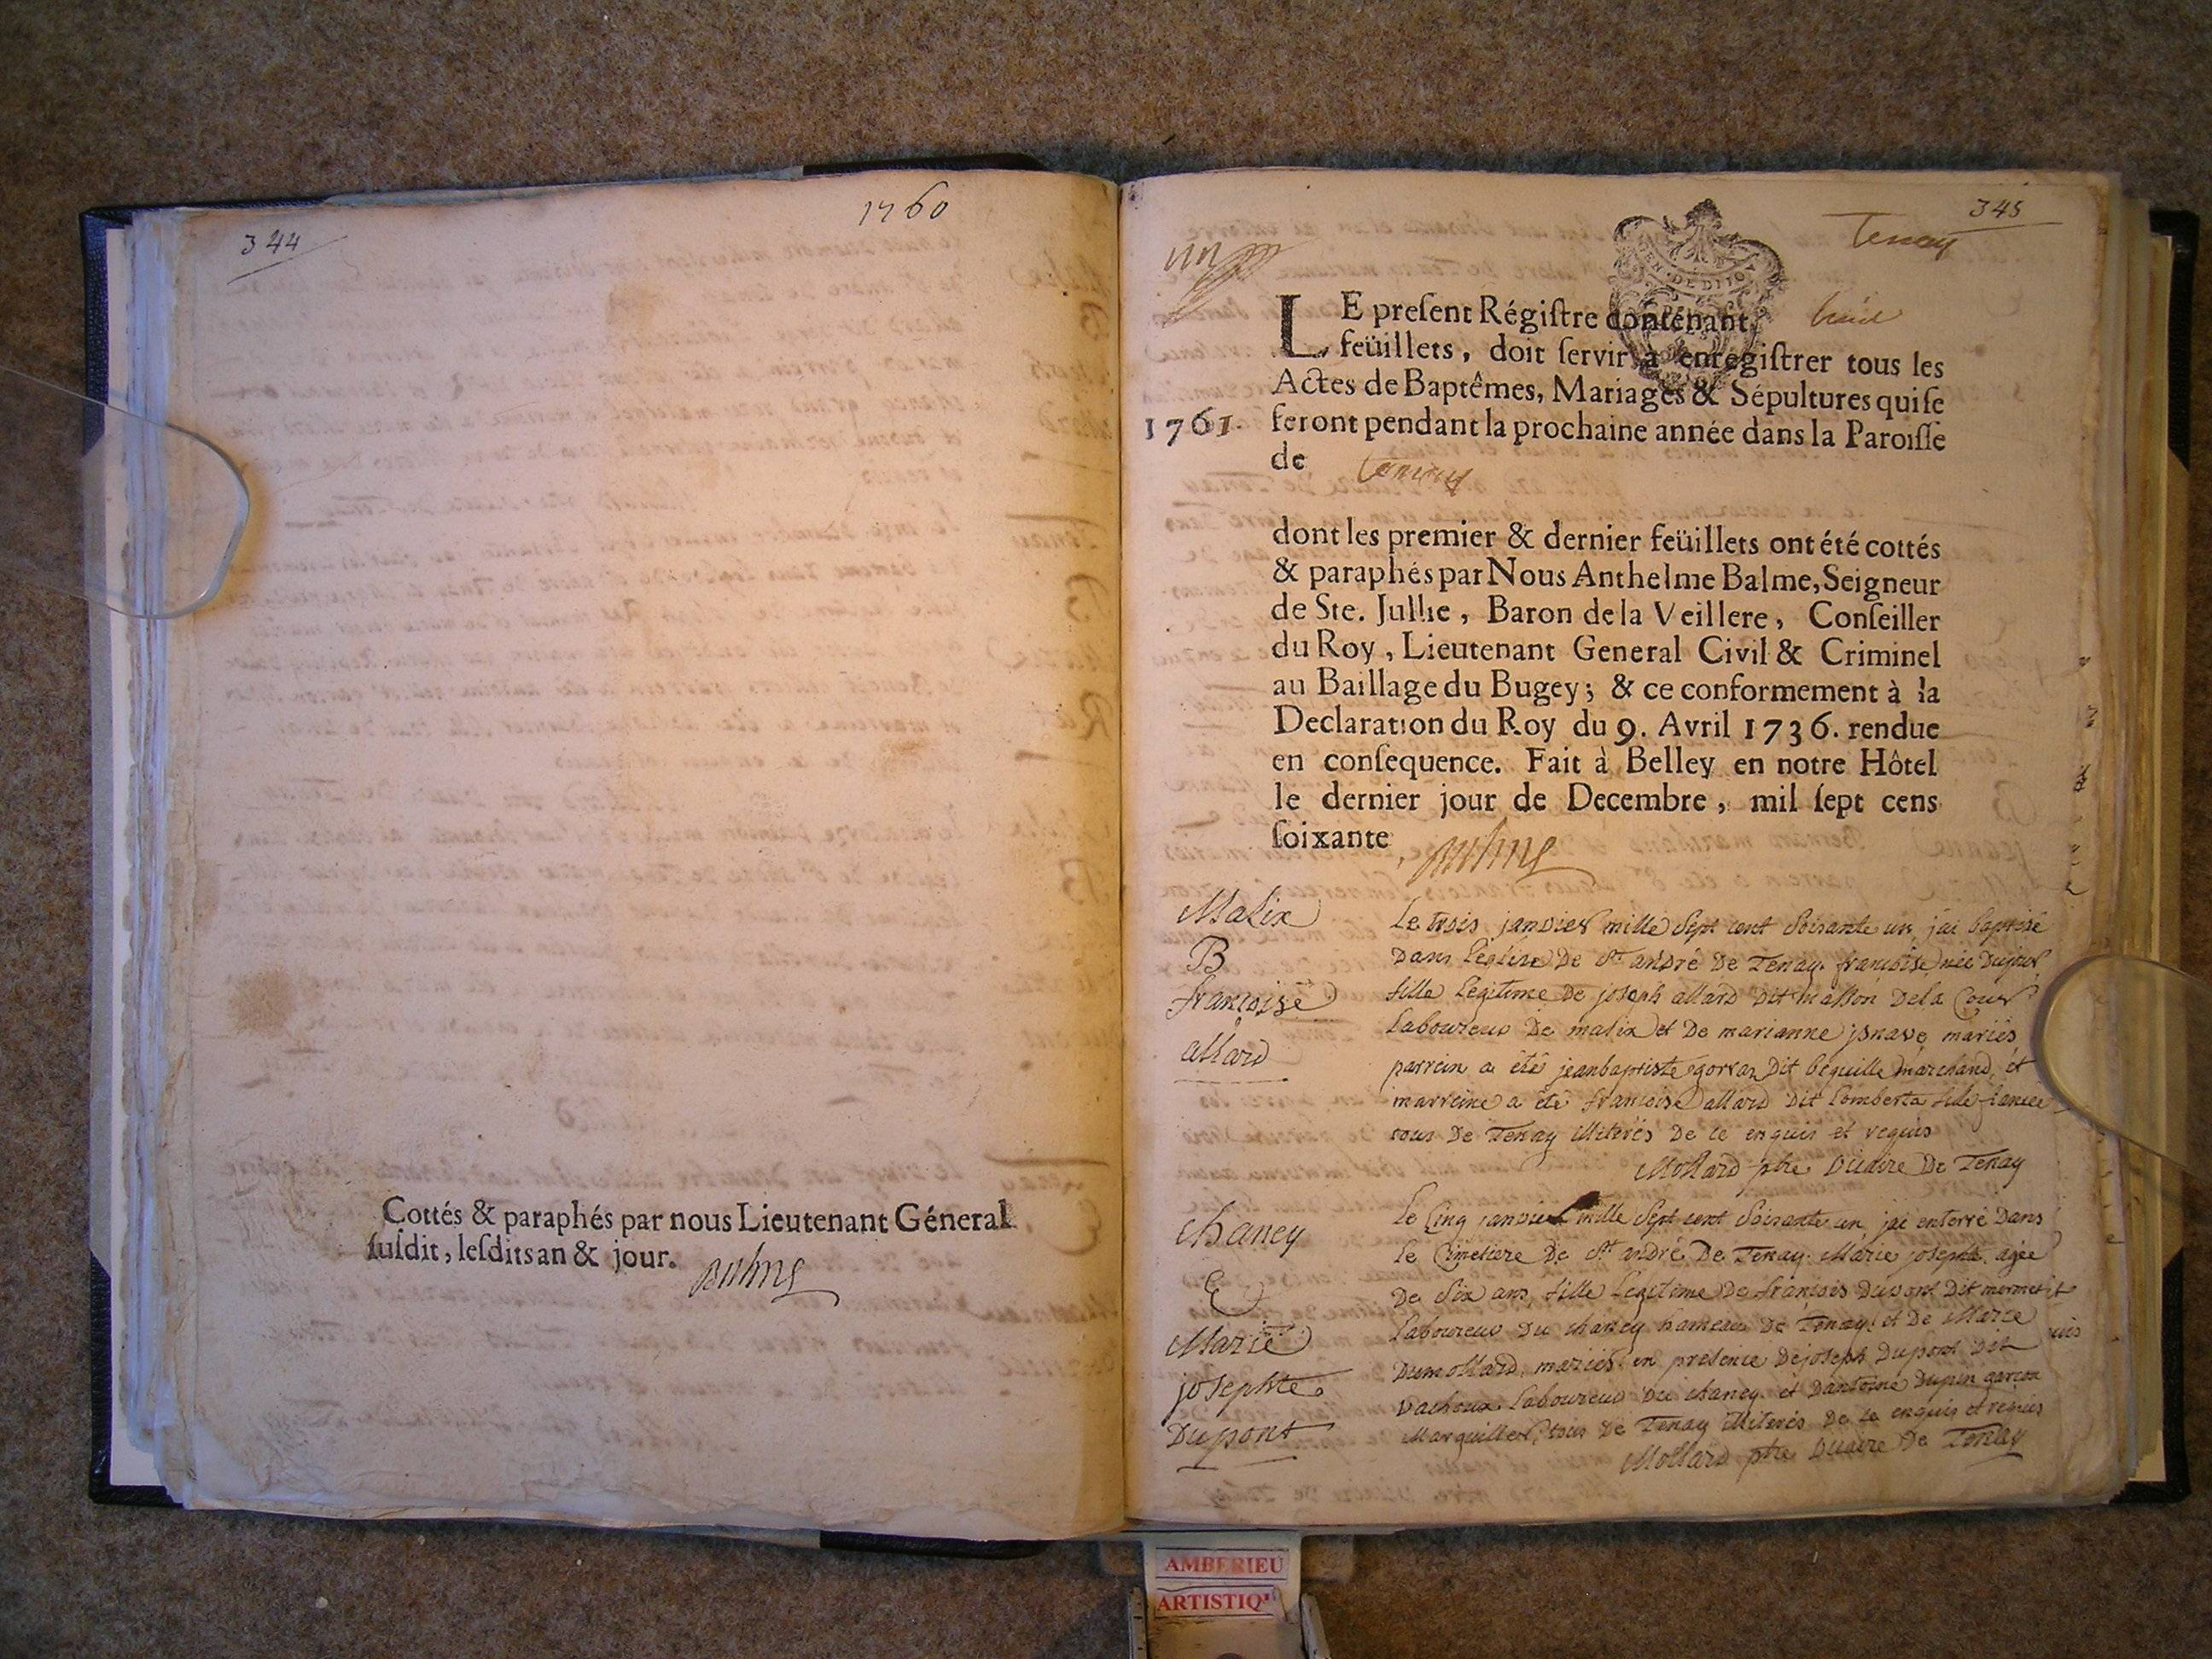 344
1760
Cottés & paraphés par nous Lieutenant Géneral
susdit, lesdits an & jour.
345
Tenay
LE present Régistre contenant huit
feüillets, doit servir à enregistrer tous les
Actes de Baptêmes, Mariages & Sépultures qui se
1761. feront pendant la prochaine année dans la Paroisse
de Tenay
dont les premier & dernier feüillets ont été cottés
& paraphés par Nous Anthelme Balme, Seigneur
de Ste. Jullie, Baron de la Veillere, Conseiller
du Roy, Lieutenant General Civil & Criminel
au Baillage du Bugey; & ce conformement à la
Declaration du Roy du 9. Avril 1736. rendue
en consequence. Fait à Belley en notre Hôtel
le dernier jour de Decembre, mil sept cens
soixante
Malix
B
francoise
allard
Le trois janvier mille sept cent soixante un j'ai baptisé
dans l'église de st andré de Tenay francoise née du jour
fille legitime de joseph allard dit masson de la Cour
laboureur de malix et de marianne jsnave mariés
parrein a été jeanbaptiste gorraz dit bequille marchand, et
marreine a été francoise allard dit Lomberta fille fiancée
tous de Tenay illiterés de ce enquis et requis
Mollard ptre vicaire de Tenay
Chaney
E
Marie
josephte
Dupont
Le Cinq janvier mille sept cent soixante un j'ai enterré dans
le Cimetiere de st andré de Tenay Marie josephte agée
de six ans, fille legitime de francois dupont dit mermetit
laboureur du chaney hameau de Tenay et de Marie
dumollard mariés en presence de joseph dupont dit
vachoux laboureur du chaney et d'antoine dupin garcon
Marguiller, tous de Tenay illiterés de ce enquis et requis
Mollard ptre vicaire de Tenay
AMBERIEU
ARTISTIQ